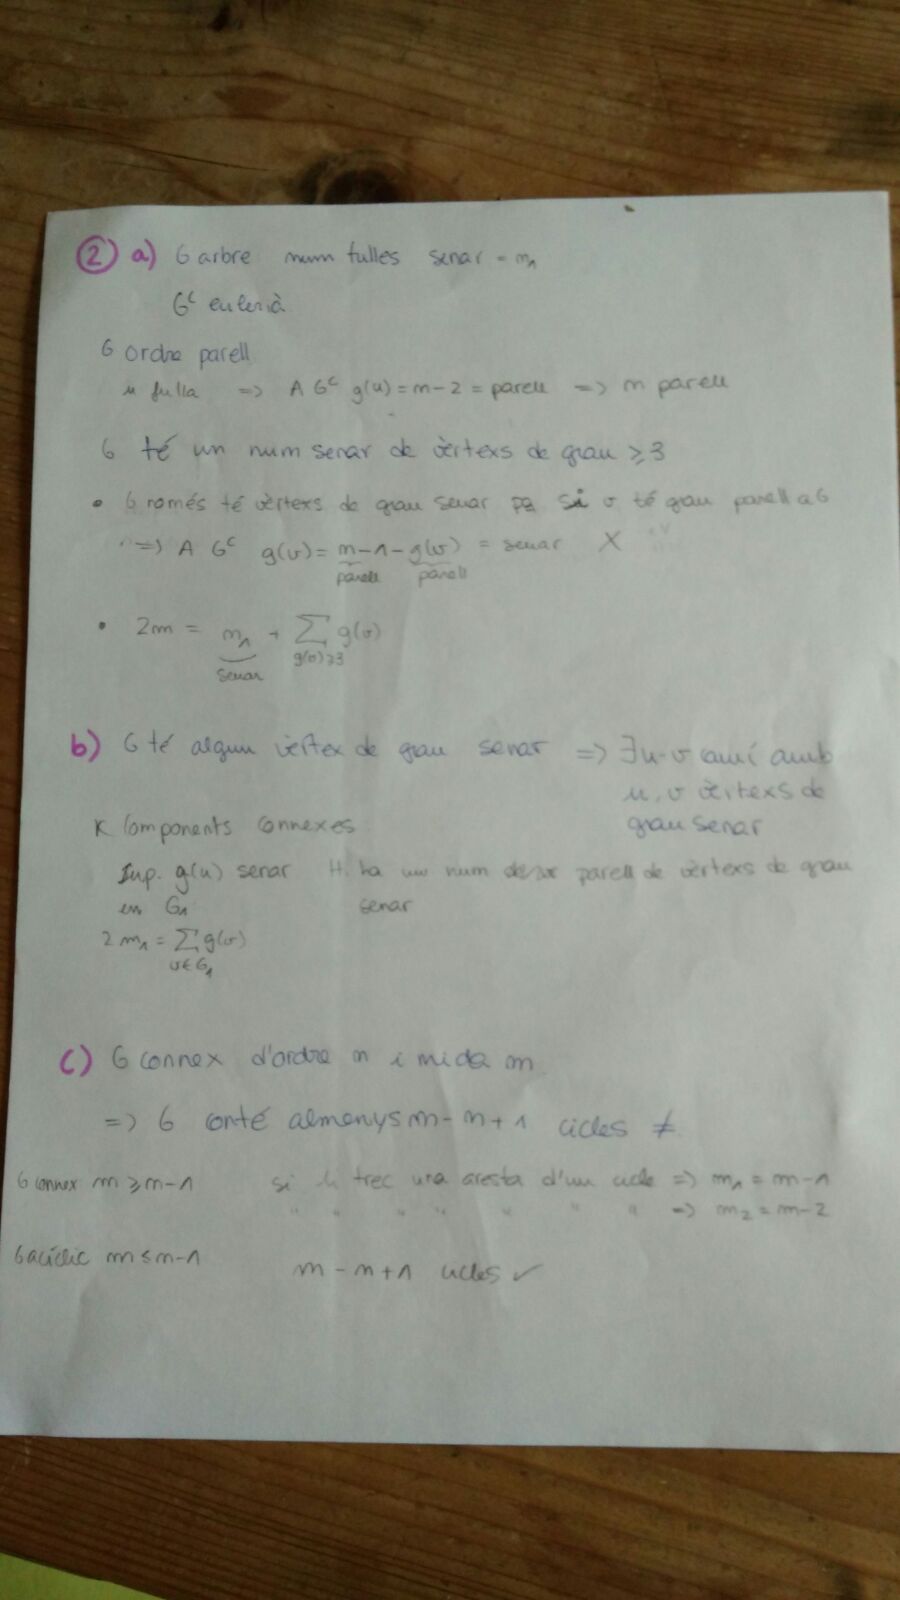 ② a) G arbre num fulles senar = n₁
Gᶜ eulerià
G ordre parell
u fulla => A Gᶜ g(u) = n-2 = parell => n parell
G té un num senar de vèrtexs de grau ≥3
• G només té vèrtexs de grau senar pq si v té grau parell a G
=> A Gᶜ g(v) = n-1-g(v) = senar X
parell parell
• 2m = n₁ + ∑ g(v)
senar g(v)≥3
b) G té algun vèrtex de grau senar => ∃ u-v camí amb
u, v vèrtexs de
grau senar
K components connexes
Sup. g(u) senar Hi ha un num parell de vèrtexs de grau
en G₁ senar
2m₁ = ∑ g(v)
v∈G₁
c) G connex d'ordre n i mida m
=> G conté almenys m-n+1 cicles ≠
G connex m ≥ n-1 si li trec una aresta d'un cicle => m₁ = m-1
" " " " " " " => m₂ = m-2
G acíclic m ≤ n-1
m-n+1 cicles ✓